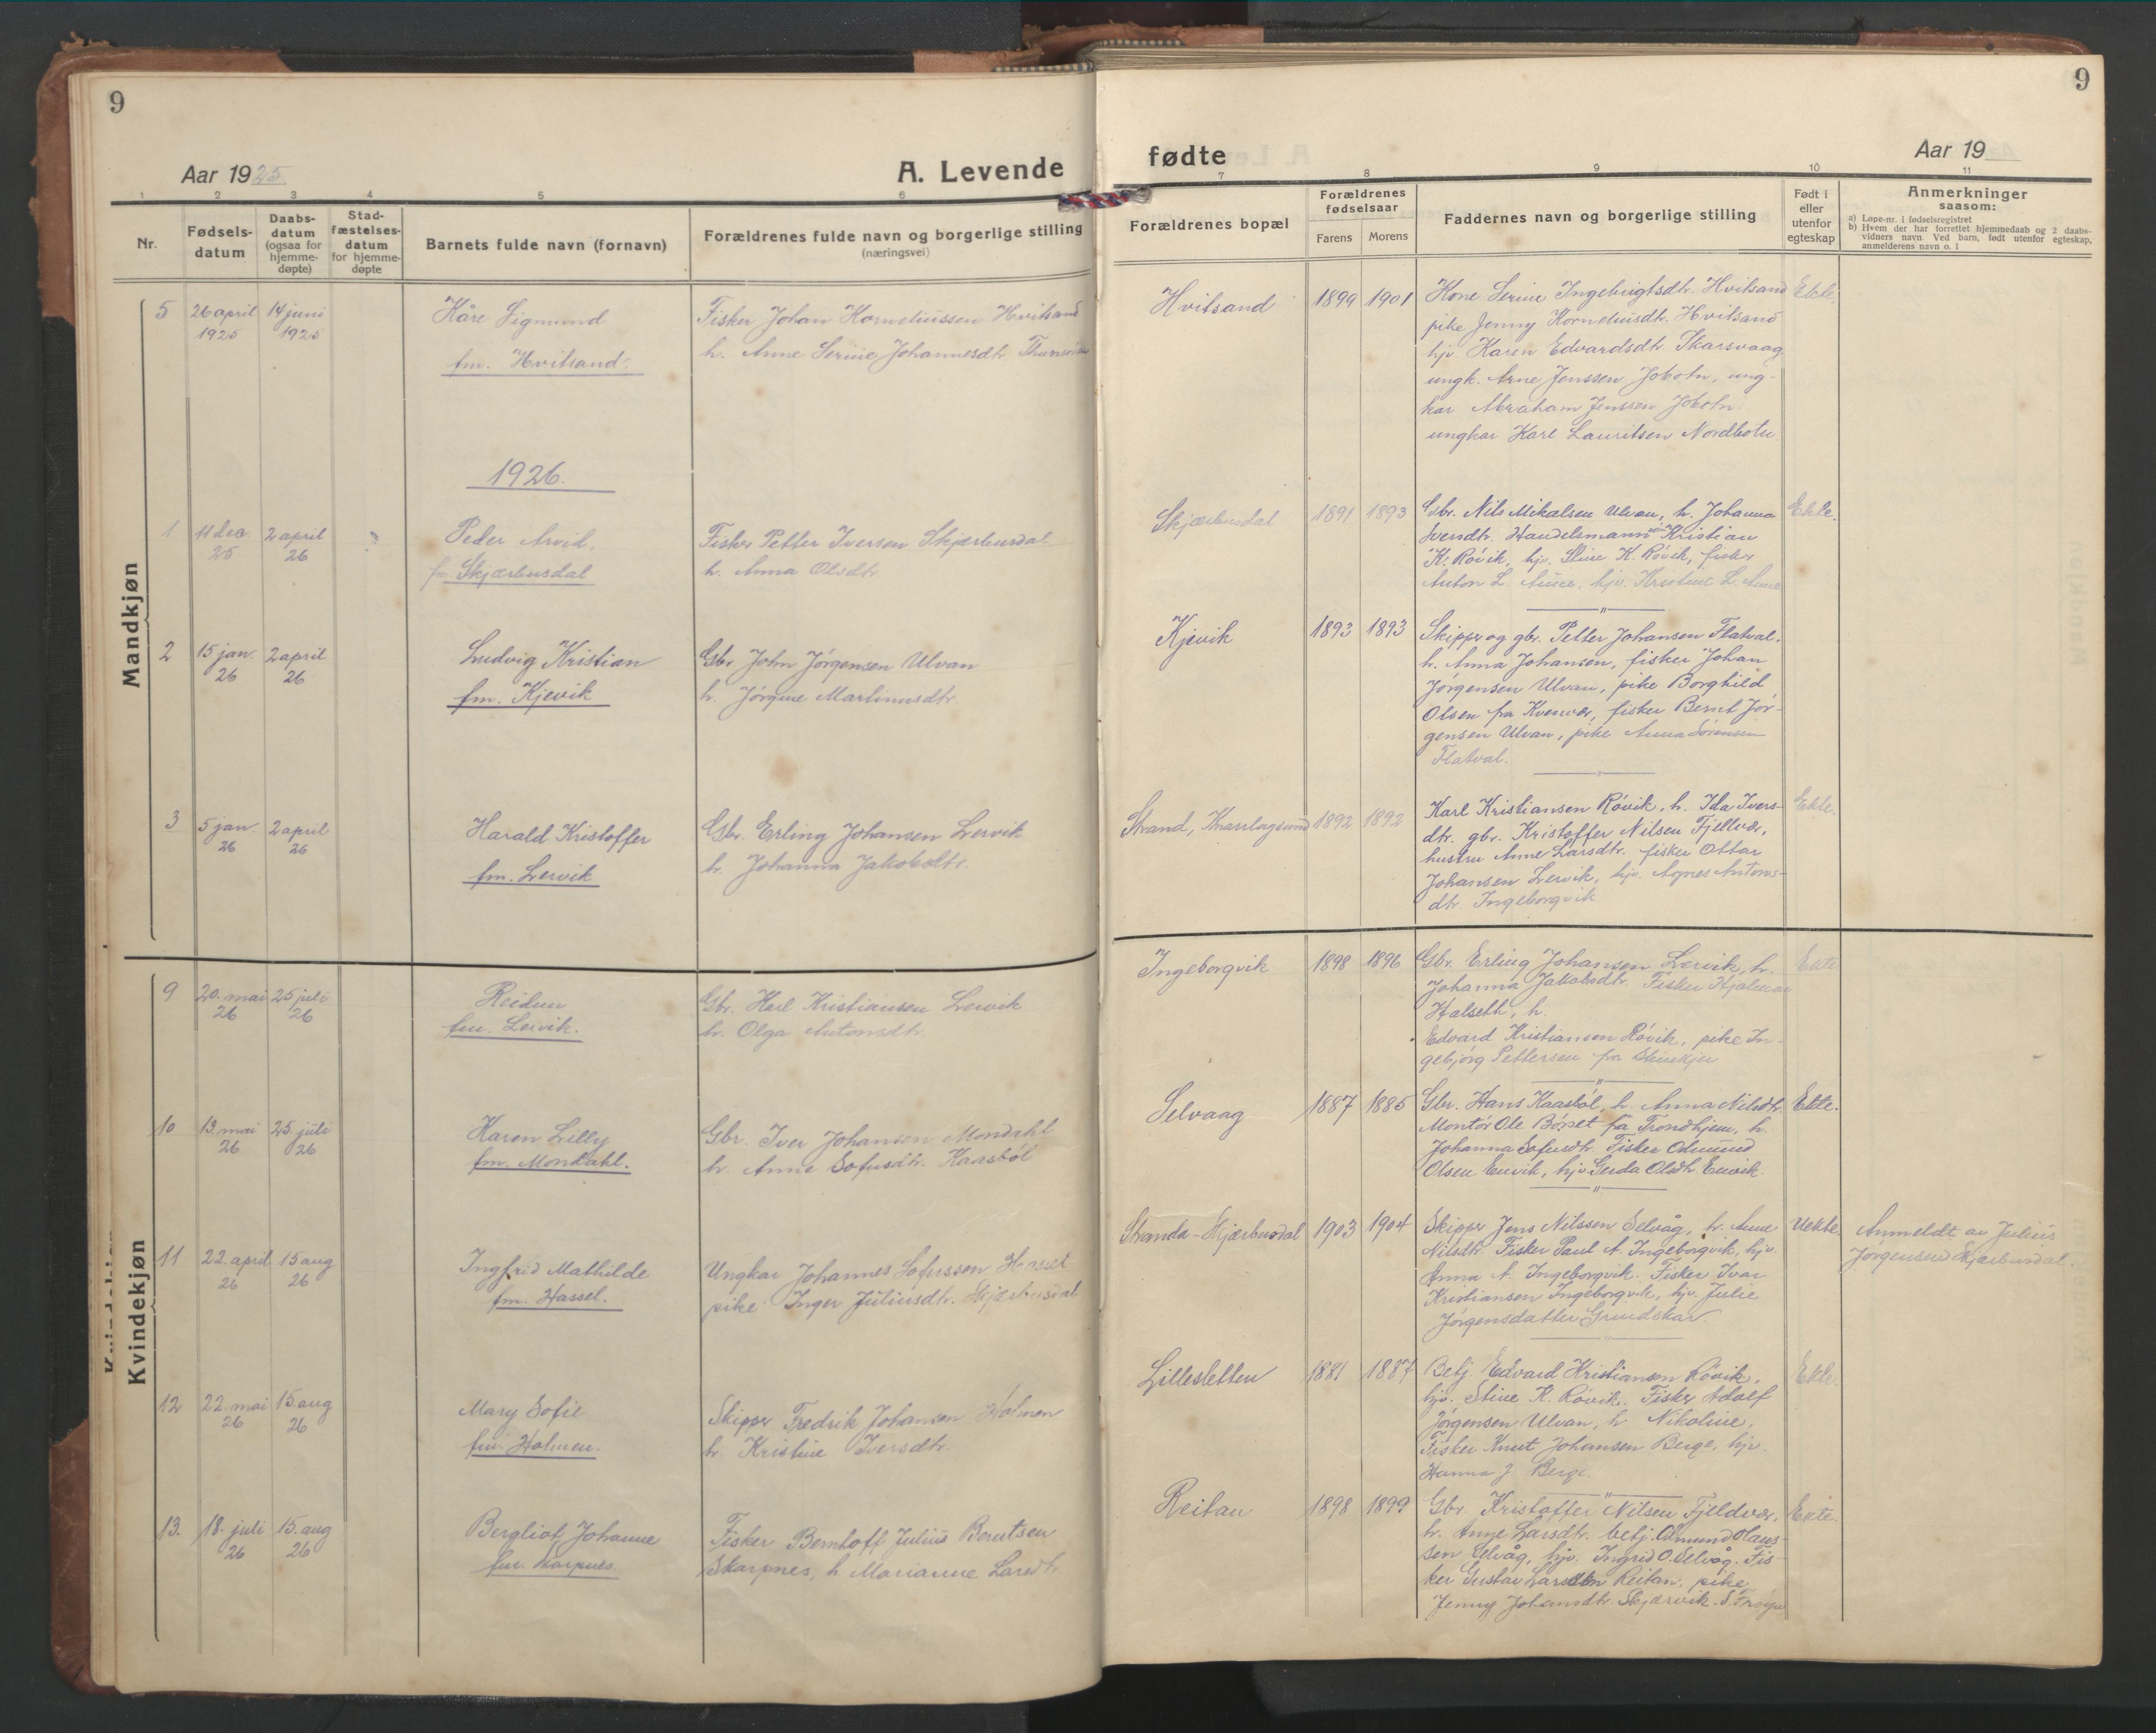 9
Aar 1925
A. Levende
1 2 3 4 5 6
Nr.
Fødsels-
datum
Daabs-
datum
(ogsaa for
hjemme-
døpte)
Stad-
fæstelses-
datum
for hjemme-
døpte
Barnets fulde navn (fornavn)
Forældrenes fulde navn og borgerlige stilling
(næringsvei)
Mandkjøn
5 26 april 14 juni Kåre Sigmund Fisker Johan Korneliussen Hvitsand
1925 1925 fm. Hvitsand. h. Anne Serine Johannesdtr.
1926.
1 11 dec. 2 april Peder Arvid. Fisker Petter Iversen Skjærbusdal
25 26 fm. Skjærbusdal h. Anna Olsdtr
2 15 jan. 2 april Ludvig Kristian Gbr John Jørgensen Ulvan
26 26 fm. Kjevik h. Jørgine Martinusdtr.
3 5 jan. 2 april Harald Kristoffer Gbr. Erling Johansen Lervik
26 26 fm. Lervik h. Johanna Jakobsdtr.
Kvindekjøn
9 20. mai 25 juli Reidun Gbr. Karl Kristiansen Lervik
26 26 fm. Lervik. h. Olga Antonsdtr.
10 13. mai 25. juli Karen Lilly Gbr. Iver Johansen Mondahl
26 26 fm. Mondahl. h. Anne Sofusdtr. Kaasbøl
11 22. april 15 aug Ingfrid Mathilde Ungkar Johannes Sofussen Hassel
26 26 fm. Hassel. pike Inger Juliusdtr. Skjærbusdal
12 22. mai 15. aug Mary Sofie Skipper Fredrik Johansen Holmen
26 26 fm. Holmen. h. Kristine Iversdtr.
13. 18. juli 15. aug Bergliot Johanne Fisker Berntoff Julius Berntsen
26 26 fm. Skarpnes. Skarpnes, h. Marianne Larsdtr.
9
fødte
Aar 19
7 8 9 10 11
Forældrenes bopæl
Forældrenes
fødselsaar
Farens Morens
Faddernes navn og borgerlige stilling
Født i
eller
utenfor
egteskap
Anmerkninger
saasom:
a) Løpe-nr. i fødselsregistret
b) Hvem der har forrettet hjemmedaab og 2 daabs-
vidners navn. Ved barn, født utenfor egteskap,
anmelderens navn o. l
Hvitsand 1899 1901 Kone Serine Ingebrigtsdtr. Hvitsand Ekte.
pike Jenny Korneliusdtr. Hvitsand
hjv. Karen Edvardsdtr. Skarsvaag
ungk. Arne Jenssen Jobotn, ung-
kar Abraham Jenssen Jobotn
ungkar Karl Lauritsen Nordbotn
Skjærbusdal 1891 1893 Gbr. Nils Mikalsen Ulvan, h. Johanna Ekte.
Iversdtr. Handelsmann Kristian
K. Røvik, hjv. Stine K. Røvik, fisker
Anton L. Aune, hjv. Kristine L. Aune
Kjevik 1893 1893 Skipper og gbr. Petter Johansen Flatval.
h. Anna Johansen, fisker Johan
Jørgensen Ulvan, pike Borghild
Olsen fra Kvenvær, fisker Bernt Jør-
gensen Ulvan, pike Anna Sørensen
Flatval.
Strand, Knarrlagsund 1892 1892 Karl Kristiansen Røvik, h. Ida Ivers- Ekte.
dtr. gbr. Kristoffer Nilsen Fjellvær,
hustru Anne Larsdtr. fisker Ottar
Johansen Lervik, hjv. Agnes Antons-
dtr. Ingeborgvik.
Ingeborgvik 1898 1896 Gbr. Erling Johansen Lervik, h. Ekte
Johanna Jakobsdtr. Fisker Hjalmar
Halseth, h.
Edvard Kristiansen Røvik, pike In-
gebjørg Pettersen fra Steinkjer
Selvaag 1887 1885 Gbr. Hans Kaasbøl, h. Anna Nilsdtr. Ekte.
Montør Ole Børset fra Trondhjem, h.
Johanna Sofusdtr. Fisker Odmund
Olsen Envik, hjv. Gerda Olsdtr. Envik.
Stranda-Skjærbusdal 1903 1904 Skipper Jens Nilssen Selvåg, h. Anne Uekte. Anmeldt av Julius
Nilsdtr. Fisker Paul A. Ingeborgvik, hjv. Jørgensen Skjærbusdal.
Anna A. Ingeborgvik. Fisker Ivar
Kristiansen Ingeborgvik, hjv. Julie
Jørgensdatter Grindskar.
Lillesletten 1881 1887 Betj. Edvard Kristiansen Røvik, Ekte.
hjv. Stine K. Røvik. Fisker Adolf
Jørgensen Ulvan, h. Nikoline,
Fisker Knut Johansen Berge, hjv.
Hanna J. Berge
Reitan 1898 1899 Gbr. Kristoffer Nilsen Fjeldvær, Ekte.
h. Anne Larsdtr. betj. Odmund Olaus-
sen Selvåg, hjv. Ingrid O. Selvåg. Fis-
ker Gustav Larssen Reitan, pike
Jenny Johansdtr. Skjærvik. S. Frøya